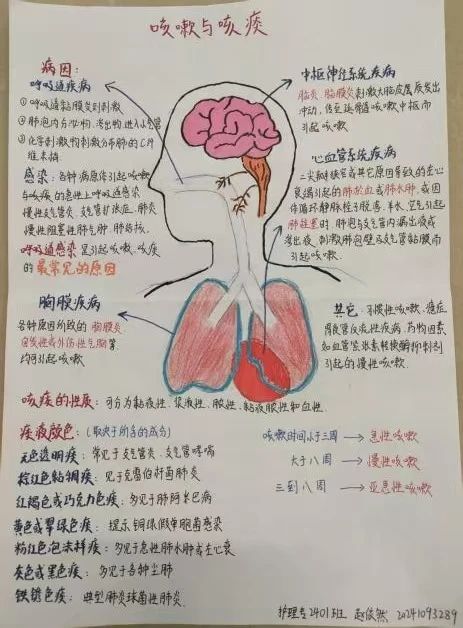 咳嗽与咳痰
病因:
呼吸道疾病
① 呼吸道黏膜受到刺激
② 肺泡内分泌物、渗出物进入小气管
③ 化学刺激物刺激分布肺的C纤
维末梢
感染:各种病原体引起咳嗽
与咳痰的急性上呼吸道感染
慢性支气管炎、支气管扩张症、肺炎
慢性阻塞性肺气肿、肺结核。
呼吸道感染是引起咳嗽、咳痰
的最常见的原因
胸膜疾病
各种原因所致的胸膜炎
自发性或外伤性气胸等
均可引起咳嗽。
中枢神经系统疾病
脑炎、脑膜炎刺激大脑皮层质发出
冲动,传至延髓咳嗽中枢而
引起咳嗽。
心血管系统疾病
二尖瓣狭窄或其它原因导致的左心
衰竭引起的肺淤血或肺水肿,或因
体循环静脉栓子脱落、羊水、空气引起
肺栓塞时,肺泡与支气管内漏出液或
渗出液,刺激肺泡壁及支气管黏膜而
引起咳嗽。
其它:习惯性咳嗽、癔症、
胃食管反流性疾病、药物因素
如血管紧张素转换酶抑制剂
引起的慢性咳嗽。
咳痰的性质:可分为黏液性、浆液性、脓性、黏液脓性和血性
痰液颜色:(取决于所含的成分)
无色透明痰:常见于支气管炎、支气管哮喘
棕红色黏稠痰:见于克雷伯杆菌肺炎
红褐色或巧克力色痰:多见于肺阿米巴病
黄色或翠绿色痰:提示铜绿假单胞菌感染
粉红色泡沫样痰:多见于急性肺水肿或左心衰
灰色或黑色痰:多见于各种尘肺
铁锈色痰:典型肺炎球菌性肺炎.
咳嗽时间小于三周 → 急性咳嗽
大于八周 → 慢性咳嗽
三到八周 → 亚急性咳嗽
护理专2401班 赵俊然 20241093289